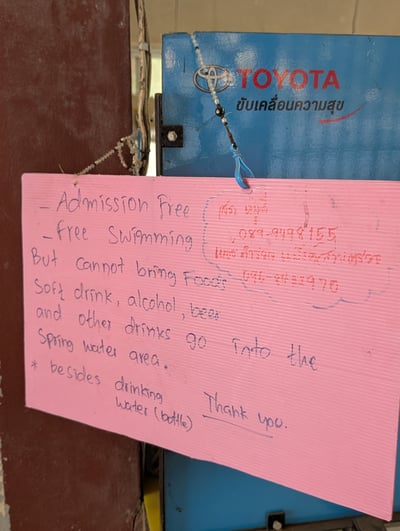 TOYOTA
ขับเคลื่อนความสุข
- Admission Free
- Free Swimming
But cannot bring Foods
Soft drink, alcohol, beer
and other drinks go into the
Spring water area.
* besides drinking
water (bottle)
Thank you.
089-9498155